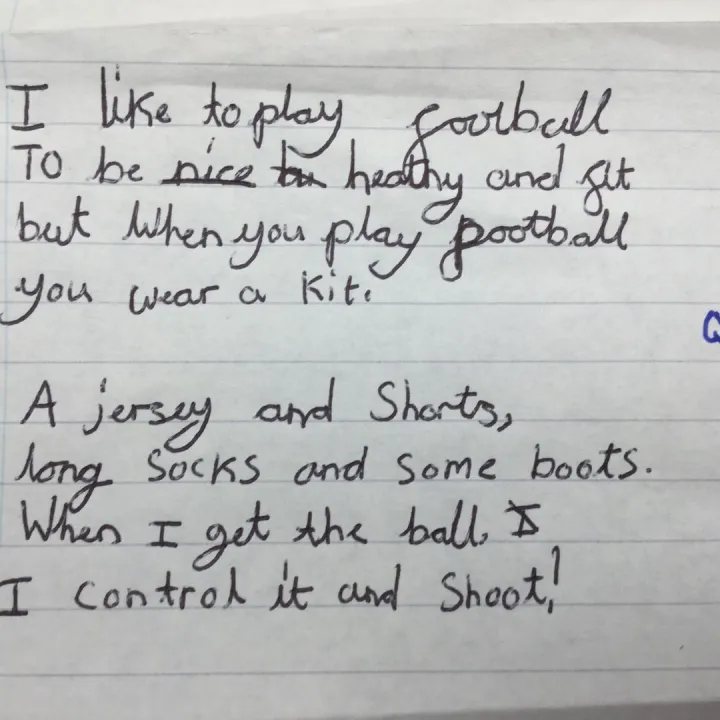 I like to play football
TO be nice to heathy and fit
but When you play football
you wear a kit.
A jersey and Shorts,
long Socks and some boots.
When I get the ball, I
I control it and Shoot!